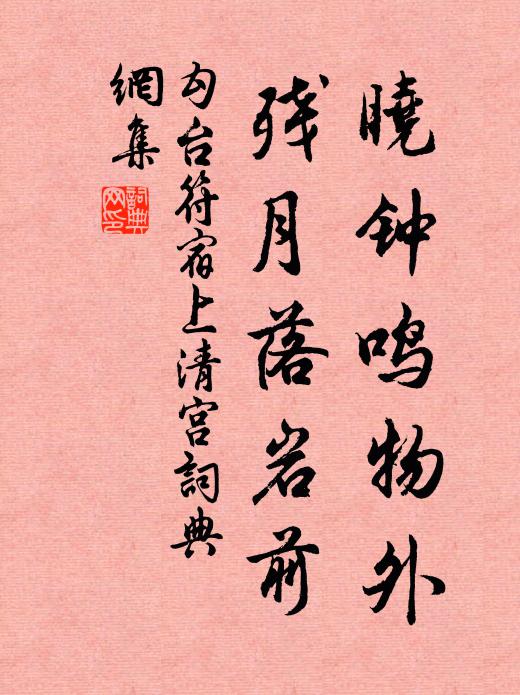 曉钟鸣物外
残月落岩前
勾台符宿上清宫詞典
網集
詞典网印